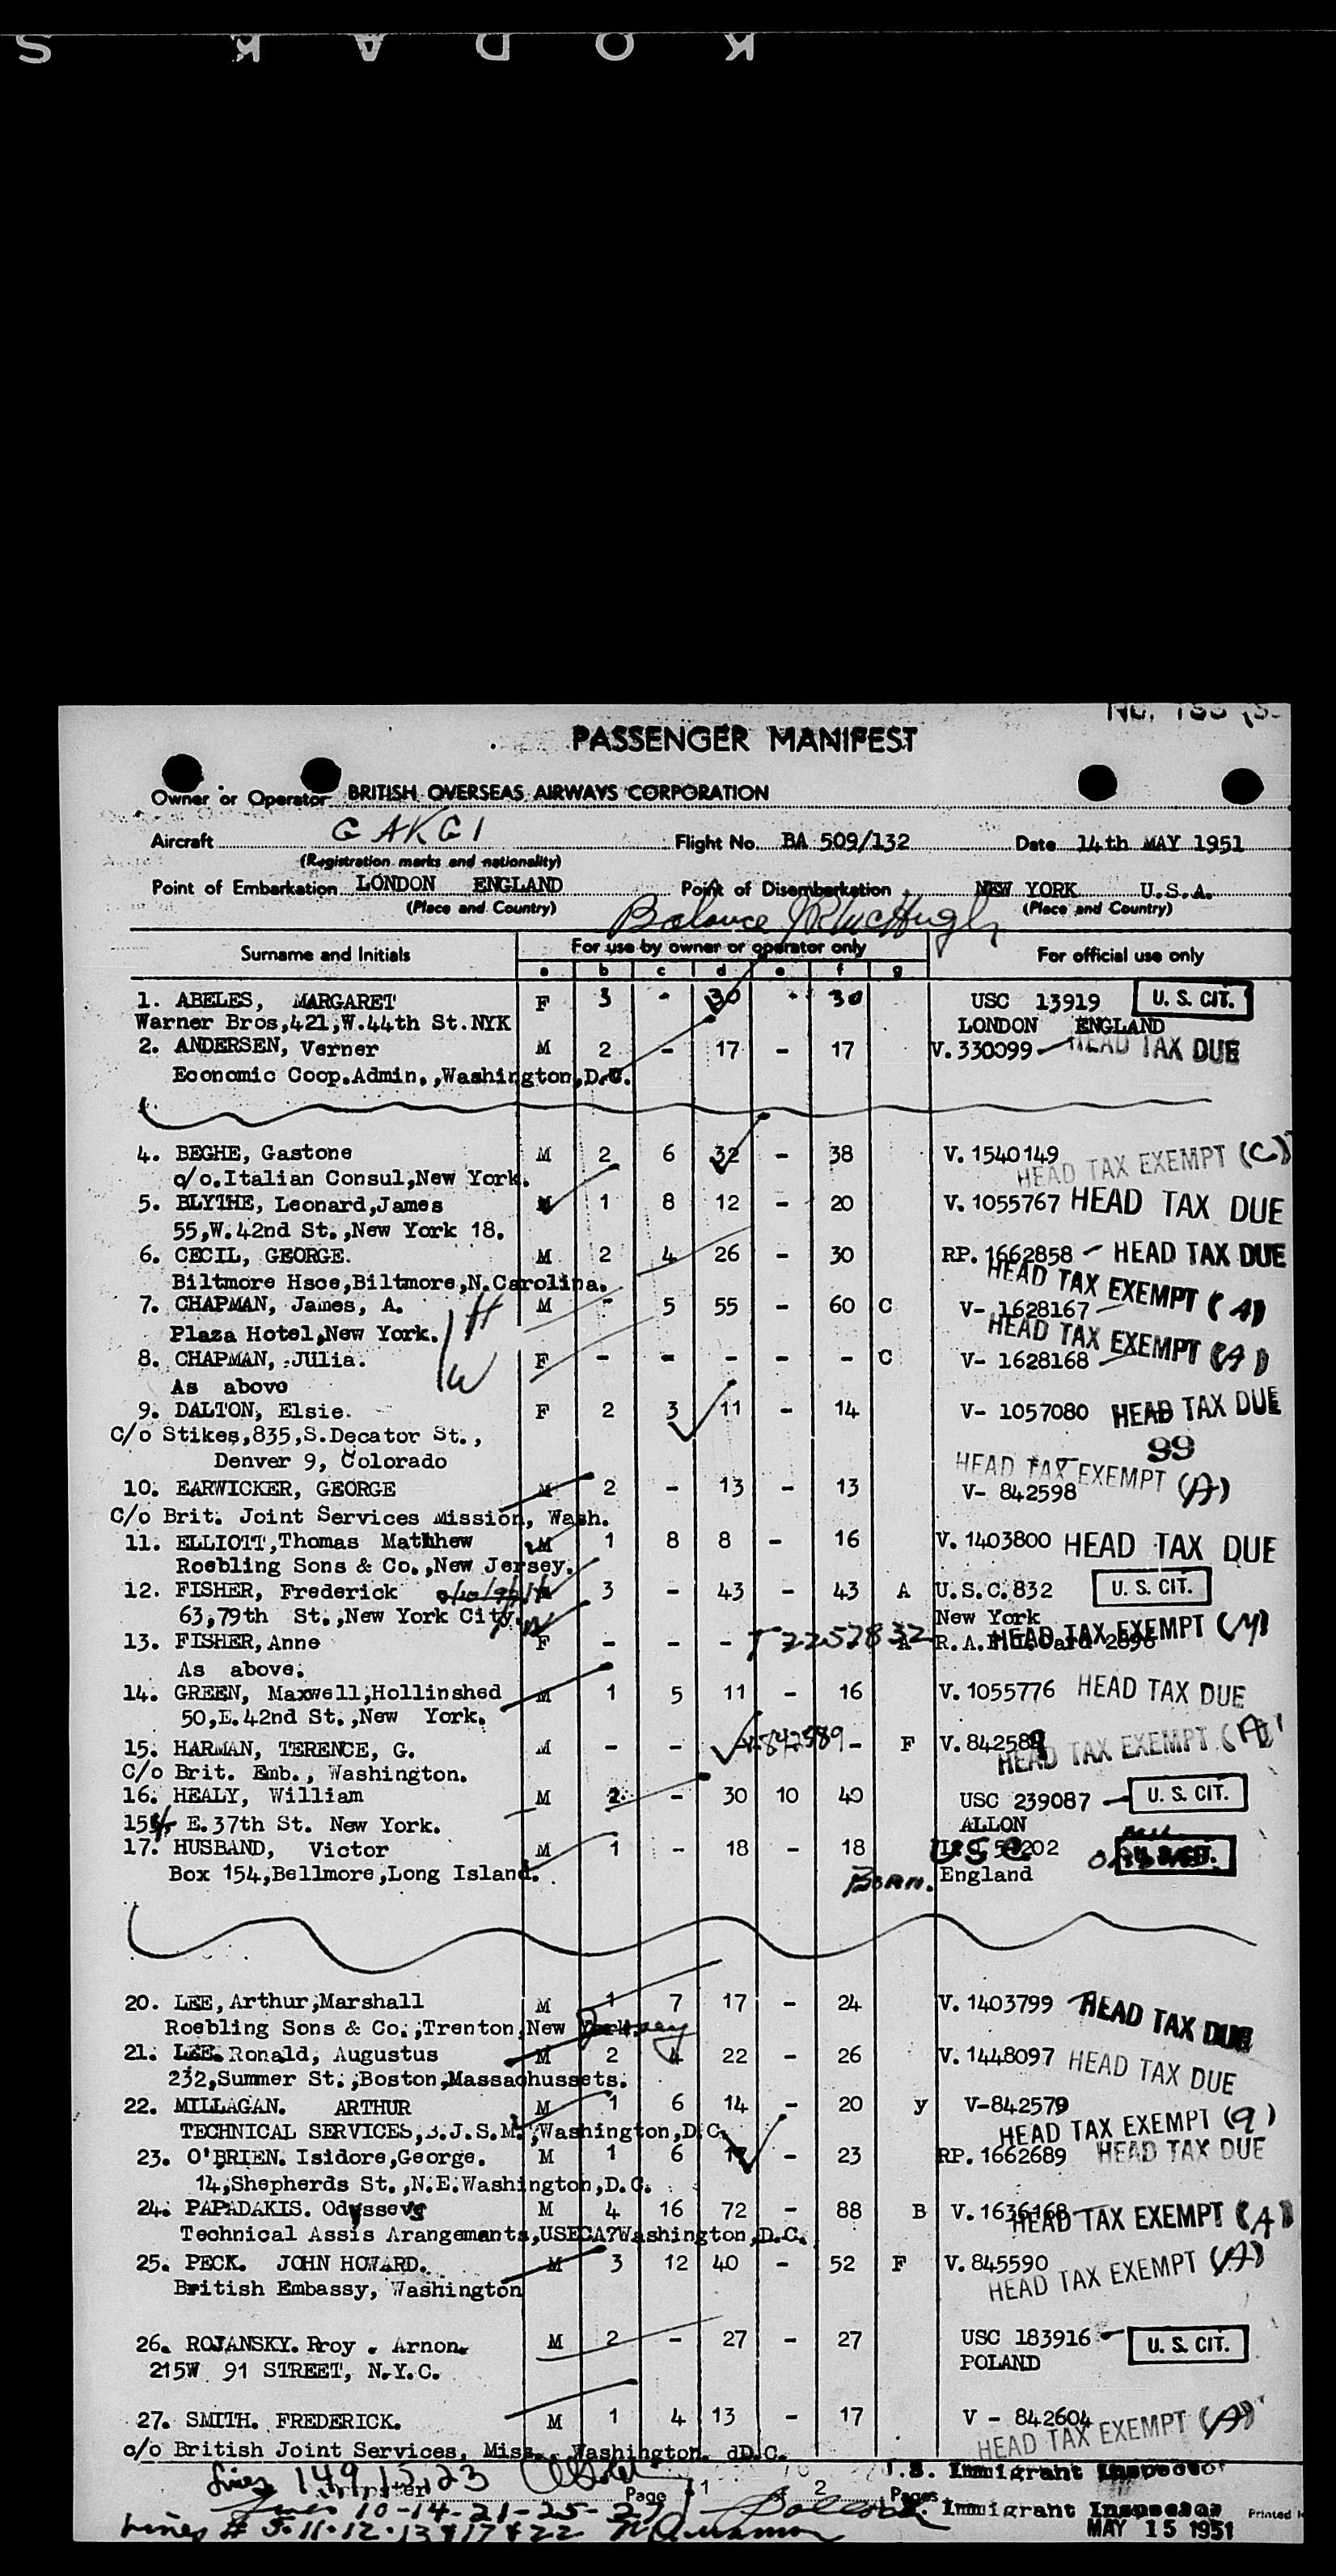 KODAK S
PASSENGER MANIFEST
Owner or Operator BRITISH OVERSEAS AIRWAYS CORPORATION
Aircraft G AKGI Flight No. BA 509/132 Date 14th MAY 1951
(Registration marks and nationality)
Point of Embarkation LONDON ENGLAND Point of Disembarkation NEW YORK U.S.A.
(Place and Country) (Place and Country)
Balance
Surname and Initials For use by owner or operator only For official use only
a b c d e f g
1. ABELES, MARGARET F 3 - 30 - 30 USC 13919 U. S. CIT.
Warner Bros,421,W.44th St.NYK LONDON ENGLAND
2. ANDERSEN, Verner M 2 - 17 - 17 V.330099 HEAD TAX DUE
Economic Coop.Admin.,Washington,D.C.
4. BEGHE, Gastone M 2 6 32 - 38 V.1540149 HEAD TAX EXEMPT (C)
c/o.Italian Consul,New York.
5. BLYTHE, Leonard,James M 1 8 12 - 20 V.1055767 HEAD TAX DUE
55,W.42nd St.,New York 18.
6. CECIL, GEORGE. M 2 4 26 - 30 RP.1662858 - HEAD TAX DUE
Biltmore Hsce,Biltmore,N.Carolina.
7. CHAPMAN, James, A. H M - 5 55 - 60 C V- 1628167 HEAD TAX EXEMPT (A)
Plaza Hotel,New York.
8. CHAPMAN, Julia. W F - - - - - C V- 1628168 HEAD TAX EXEMPT (A)
As above
9. DALTON, Elsie. F 2 3 11 - 14 V- 1057080 HEAD TAX DUE
C/o Stikes,835,S.Decator St., 99
Denver 9, Colorado
10. EARWICKER, GEORGE M 2 - 13 - 13 V- 842598 HEAD TAX EXEMPT (A)
C/o Brit. Joint Services Mission, Wash.
11. ELLIOTT,Thomas Mathhew M 1 8 8 - 16 V.1403800 HEAD TAX DUE
Roebling Sons & Co.,New Jersey.
12. FISHER, Frederick 3 - 43 - 43 A U.S.C.832 U. S. CIT.
63,79th St.,New York City. New York
13. FISHER,Anne F - - - T2257832 A R.A. Card 2896 HEAD TAX EXEMPT (M)
As above.
14. GREEN, Maxwell,Hollinshed M 1 5 11 - 16 V.1055776 HEAD TAX DUE
50,E.42nd St.,New York.
15. HARMAN, TERENCE, G. M - - 842589 - F V.842589 HEAD TAX EXEMPT (A)
C/o Brit. Emb., Washington.
16. HEALY, William M 2 - 30 10 40 USC 239087 U. S. CIT.
E.37th St. New York. ALLON
17. HUSBAND, Victor M 1 - 18 - 18 USC
Box 154,Bellmore,Long Island. Born. England
20. LEE,Arthur,Marshall M 1 7 17 - 24 V.1403799 HEAD TAX DUE
Roebling Sons & Co.,Trenton,New York. Jersey
21. LEE.Ronald, Augustus M 2 4 22 - 26 V.1448097 HEAD TAX DUE
232,Summer St.,Boston,Massachussets.
22. MILLAGAN. ARTHUR M 1 6 14 - 20 y V-842579 HEAD TAX EXEMPT (9)
TECHNICAL SERVICES,B.J.S.M.,Washington,D.C.
23. O'BRIEN. Isidore,George. M 1 6 17 - 23 RP.1662689 HEAD TAX DUE
14,Shepherds St.,N.E.Washington,D.C.
24. PAPADAKIS. Odysseve M 4 16 72 - 88 B V.1636168 HEAD TAX EXEMPT (A)
Technical Assis Arangemants,USECA?Washington,D.C.
25. PECK. JOHN HOWARD. M 3 12 40 - 52 F V.845590 HEAD TAX EXEMPT (A)
British Embassy, Washington
26. ROJANSKY. Rroy . Arnon. M 2 - 27 - 27 USC 183916 U. S. CIT.
215W 91 STREET, N.Y.C. POLAND
27. SMITH. FREDERICK. M 1 4 13 - 17 V - 842604 HEAD TAX EXEMPT (A)
c/o British Joint Services, Miss., Washington. dD.C.
Page 1 2 Pages U.S. Immigrant Inspector
Lines 10-14-21-25-27 Immigrant Inspector Printed
Lines # 5.11.12.13 & 17 & 22 MAY 15 1951